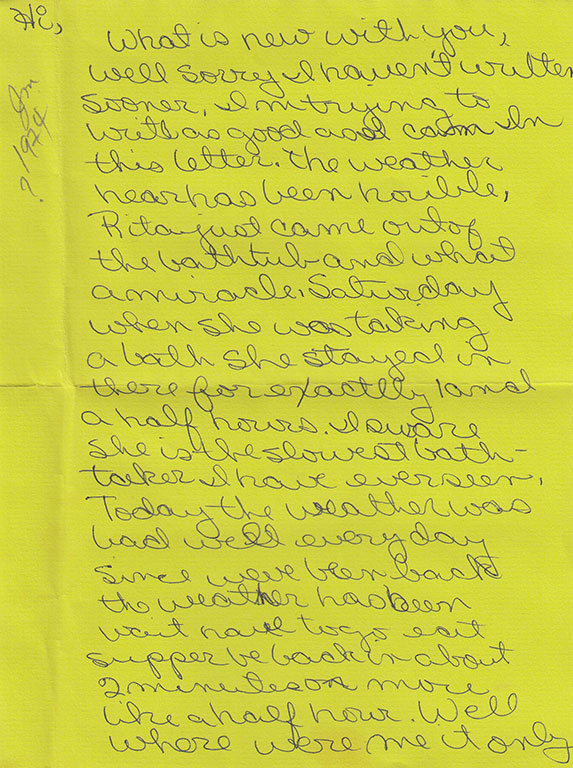 Hi,
What is new with you,
well sorry I haven't written
sooner, I'm trying to
write as good as I can In
this letter. The weather
hear has been horible,
Rita just came out of
the bathtub and what
a miracle, Saturday
when she was taking
a bath she stayed in
there for exactlly 1 and
a half hours. I sware
she is the slowest bath-
taker I have ever seen.
Today the weather was
bad well every day
since weve been back
the weather has been
wait have to go eat
supper be back in about
2 minutes or more
like a half hour. Well
where were me it only
? 1974